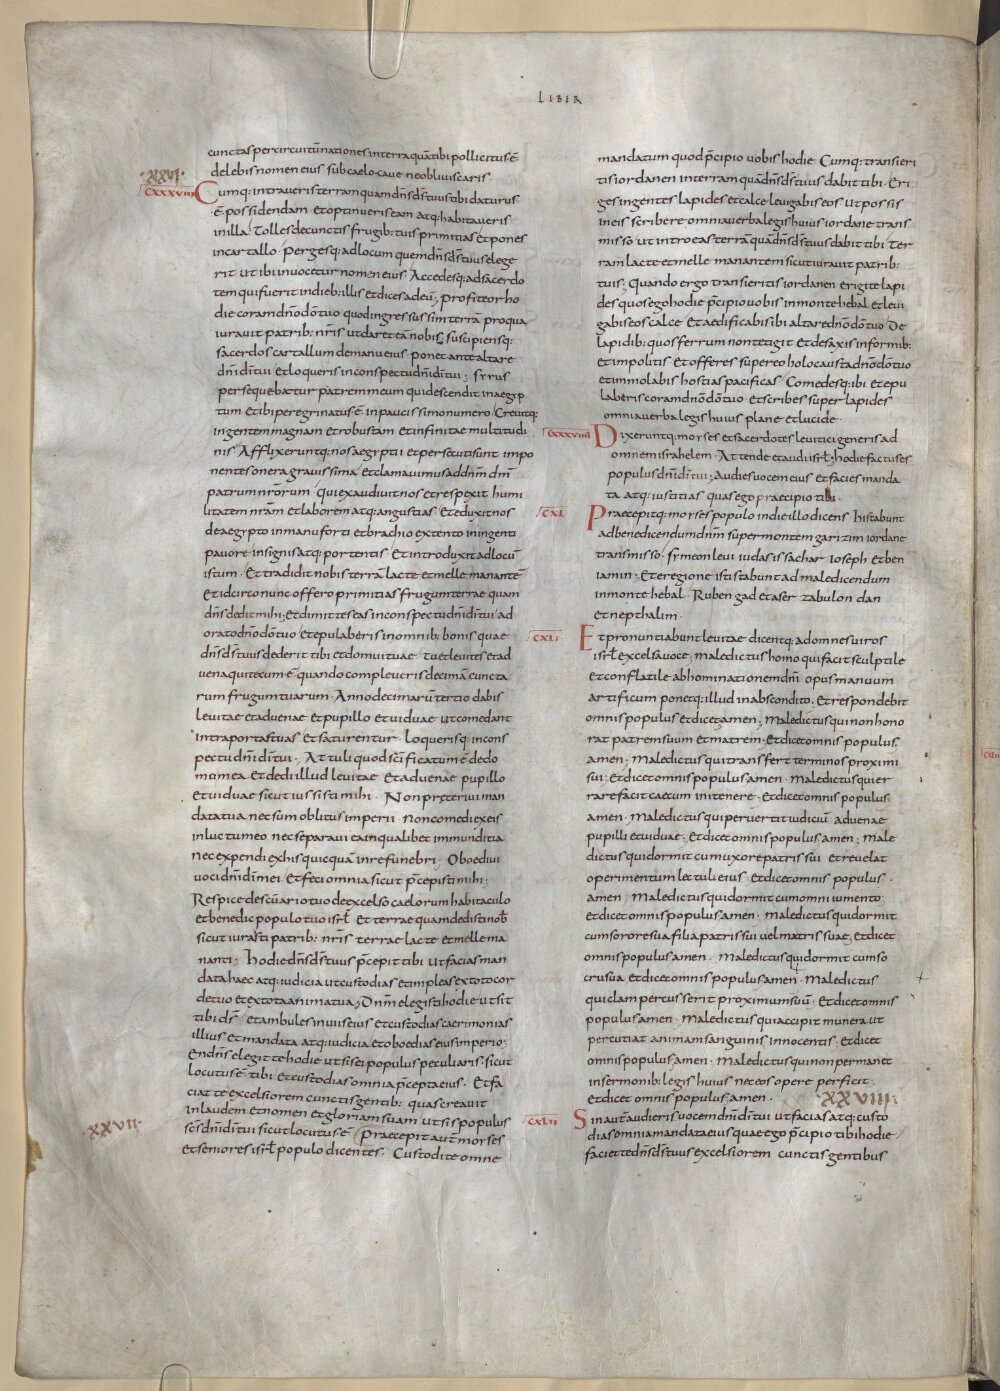 LIBER
cunctas per circuitū nationes in terra quā tibi pollicitus ē
delebis nomen eius sub caelo. Caue ne obliuiscaris.
XXVI.
CXXXVIII
Cumq: intraueris terram quam dn̄s ds̄ tuus tibi daturus
ē possidendam et optinueris eam atq: habitaueris
in illa. Tolles de cunctis frugib: tuis primitias et pones
in cartallo. Pergesq: ad locum quem dn̄s ds̄ tuus elege
rit ut ibi inuocetur nomen eius. Accedesq: ad sacerdo
tem qui fuerit in dieb: illis et dices ad eū; profiteor ho
die coram dn̄o dō tuo quod ingressus sim terrā pro qua
iurauit patrib: nr̄is ut daret eā nobis; suscipiensq:
sacerdos cartallum de manu eius ponet ante altare
dn̄i dī tui. et loqueris in conspectu dn̄i dī tui; syrus
persequebatur patrem meum qui descendit in aegyp
tum et ibi peregrinatus ē in paucissimo numero. Creuitq:
in gentem magnam et robustam et infinitae multitudi
nis. Afflixeruntq: nos aegyptii et persecuti sunt impo
nentes onera grauissima. et clamauimus ad dn̄m dm̄
patrum nr̄orum. qui exaudiuit nos et respexit humi
litatem nr̄am et laborem atq: angustias. Et eduxit nos
de aegypto in manu forti et brachio extento in ingenti
pauore in signis atq: portentis. Et introduxit ad locū
istum. Et tradidit nobis terrā lacte et melle manantē
Et idcirco nunc offero primitias frugum terrae quam
dn̄s dedit mihi; et dimittes eas in conspectu dn̄i dī tui ad
orato dn̄o dō tuo et epulaberis in omnib: bonis quae
dn̄s ds̄ tuus dederit tibi et domui tuae. tu et leuites et ad
uena qui tecum ē; quando compleueris decimā cuncta
rum frugum tuarum. Anno decimarū tertio dabis
leuitae et aduenae et pupillo et uiduae ut comedant
intra portas tuas et saturentur. loquerisq: in cons
pectu dn̄i dī tui; Attuli quod scīficatum ē de do
mo mea. et dedi illud leuitae et aduenae pupillo
et uiduae sicut iussisti mihi. Non preteriui man
data tua nec sum oblitus imperii. Non comedi ex eis
in luctu meo nec separaui ea in qualibet immunditia
nec expendi ex his quicquā in re funebri. Oboediui
uoci dn̄i dī mei. et feci omnia sicut p̄cepisti mihi:
Respice de scuārio tuo de excelso caelorum habitaculo
et benedic populo tuo isrl̄. et terrae quam dedisti nob̄
sicut iurasti patrib: nr̄is terrae lacte et melle ma
nanti; hodie dn̄s ds̄ tuus p̄cepit tibi ut facias man
data haec atq: iudicia ut custodias et impleas ex toto cor
de tuo et ex tota anima tua; Dn̄m elegisti hodie ut sit
tibi ds̄ et ambules in uiis eius et custodias caerimonias
illius et mandata atq: iudicia et oboedias eius imperio;
En dn̄s elegit te hodie ut sis ei populus peculiaris. sicut
locutus ē tibi et custodias omnia p̄cepta eius. Et fa
ciat te excelsiorem cunctis gentib: quas creauit
in laudem et nomen et gloriam suam. ut sis populus
XXVII.
scs̄ dn̄i dī tui sicut locutus ē. Praecepit aut̄ moyses
et seniores isrl̄ populo dicentes. Custodite omne
mandatum quod p̄cipio uobis hodie. Cumq: transieri
tis iordanen in terram quā dn̄s ds̄ tuus dabit tibi. Eri
ges ingentes lapides et calce leuigabis eos ut possis
in eis scribere omnia uerba legis huius iordane trans
misso. ut introeas terrā quā dn̄s ds̄ tuus dabit tibi. ter
ram lacte et melle manantem sicut iurauit patrib:
tuis; Quando ergo transieritis iordanen erigite lapi
des quos ego hodie p̄cipio uobis in monte hebal. et leui
gabis eos calce. Et aedificabis ibi altare dn̄o dō tuo. De
lapidib: quos ferrum non tetigit et de saxis informib:
et impolitis. Et offeres super eo holocausta dn̄o dō tuo
et immolabis hostias pacificas. Comedesq: ibi et epu
laberis coram dn̄o dō tuo. et scribes super lapides
omnia uerba legis huius plane et lucide
CXXXVIIII
Dixeruntq: moyses et sacerdotes leuitici generis ad
omnem israhelem. Attende et audi isrl̄; hodie factus es
populus dn̄i dī tui; Audies uocem eius et facies manda
ta atq: iustitias quas ego praecipio tibi.
CXL
Praecepitq: moyses populo in die illo dicens. hi stabunt
ad benedicendum dn̄m super montem garizim iordane
transmisso. symeon leui iudas issachar ioseph et ben
iamin; Et e regione isti stabunt ad maledicendum
in monte hebal. Ruben gad et aser zabulon dan
et nepthalim.
CXLI
Et pronuntiabunt leuitae dicentq: ad omnes uiros
isrl̄ excelsa uoce; maledictus homo qui facit sculptile
et conflatile abhominationem dn̄i. opus manuum
artificum ponetq: illud in abscondito; et respondebit
omnis populus et dicet; amen; Maledictus qui non hono
rat patrem suum et matrem. Et dicet omnis populus;
amen; Maledictus qui transfert terminos proximi
sui; Et dicet omnis populus amen. Maledictus qui er
rare facit caecum in itenere. Et dicet omnis populus;
amen. Maledictus qui peruertit iudiciū aduenae
pupilli et uiduae; Et dicet omnis populus amen; Male
dictus qui dormit cum uxore patris sui et reuelat
operimentum lectuli eius. Et dicet omnis populus.
amen; Maledictus qui dormit cum omni iumento
et dicet omnis populus amen. Maledictus qui dormit
cum sorore sua filia patris sui uel matris suae; et dicet
omnis populus amen. Maledictus qui dormit cum so
cru sua et dicet omnis populus amen. Maledictus
qui clam percusserit proximum suū. Et dicet omnis
populus amen. Maledictus qui accipit munera ut
percutiat animam sanguinis innocentis. Et dicet
omnis populus amen. Maledictus qui non permanet
in sermonib: legis huius nec eos opere perficit;
et dicet omnis populus amen. XXVIII.
CXLII
Sin aut̄ audieris uocem dn̄i dī tui ut facias atq: custo
dias omnia mandata eius quae ego p̄cipio tibi hodie
faciet te dn̄s ds̄ tuus excelsiorem cunctis gentibus